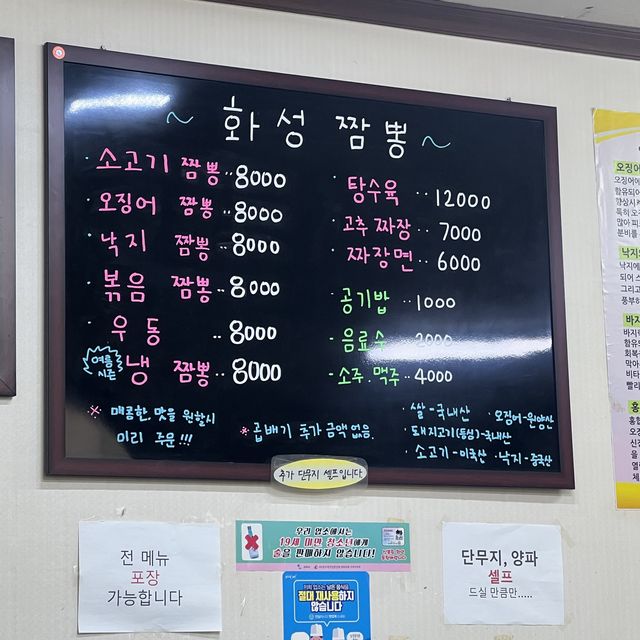 ~ 화성 짬뽕 ~
· 소고기 짬뽕 ·· 8000
· 오징어 짬뽕 ·· 8000
· 낙지 짬뽕 ·· 8000
· 볶음 짬뽕 ·· 8000
· 우동 ·· 8000
여름시즌 냉 짬뽕 ·· 8000
· 탕수육 ·· 12000
· 고추짜장 ·· 7000
· 짜장면 ·· 6000
· 공기밥 ·· 1000
- 음료수 ·· 2000
- 소주.맥주 ·· 4000
※ 매콤한.맛을 원할시
미리 주문!!!
※ 곱배기 추가 금액 없음.
· 쌀-국내산 · 오징어-원양산
· 돼지고기(등심)-국내산
· 소고기-미국산 · 낙지-중국산
추가 단무지 셀프입니다
전 메뉴
포장
가능합니다
우리 업소에서는
19세 미만 청소년에게
술을 판매하지 않습니다!
저희 업소는 남은 음식을
절대 재사용하지
않습니다
단무지, 양파
셀프
드실 만큼만.....
오징어
오징어에
함유되어
향상시켜
특히 오
많아 피
분비를
낙지
낙지에
되어 스
그리고
풍부하
바지
바지락
함유
회복
막아
비타
빨리
홍
홍합
오징
신진
을
열량
체